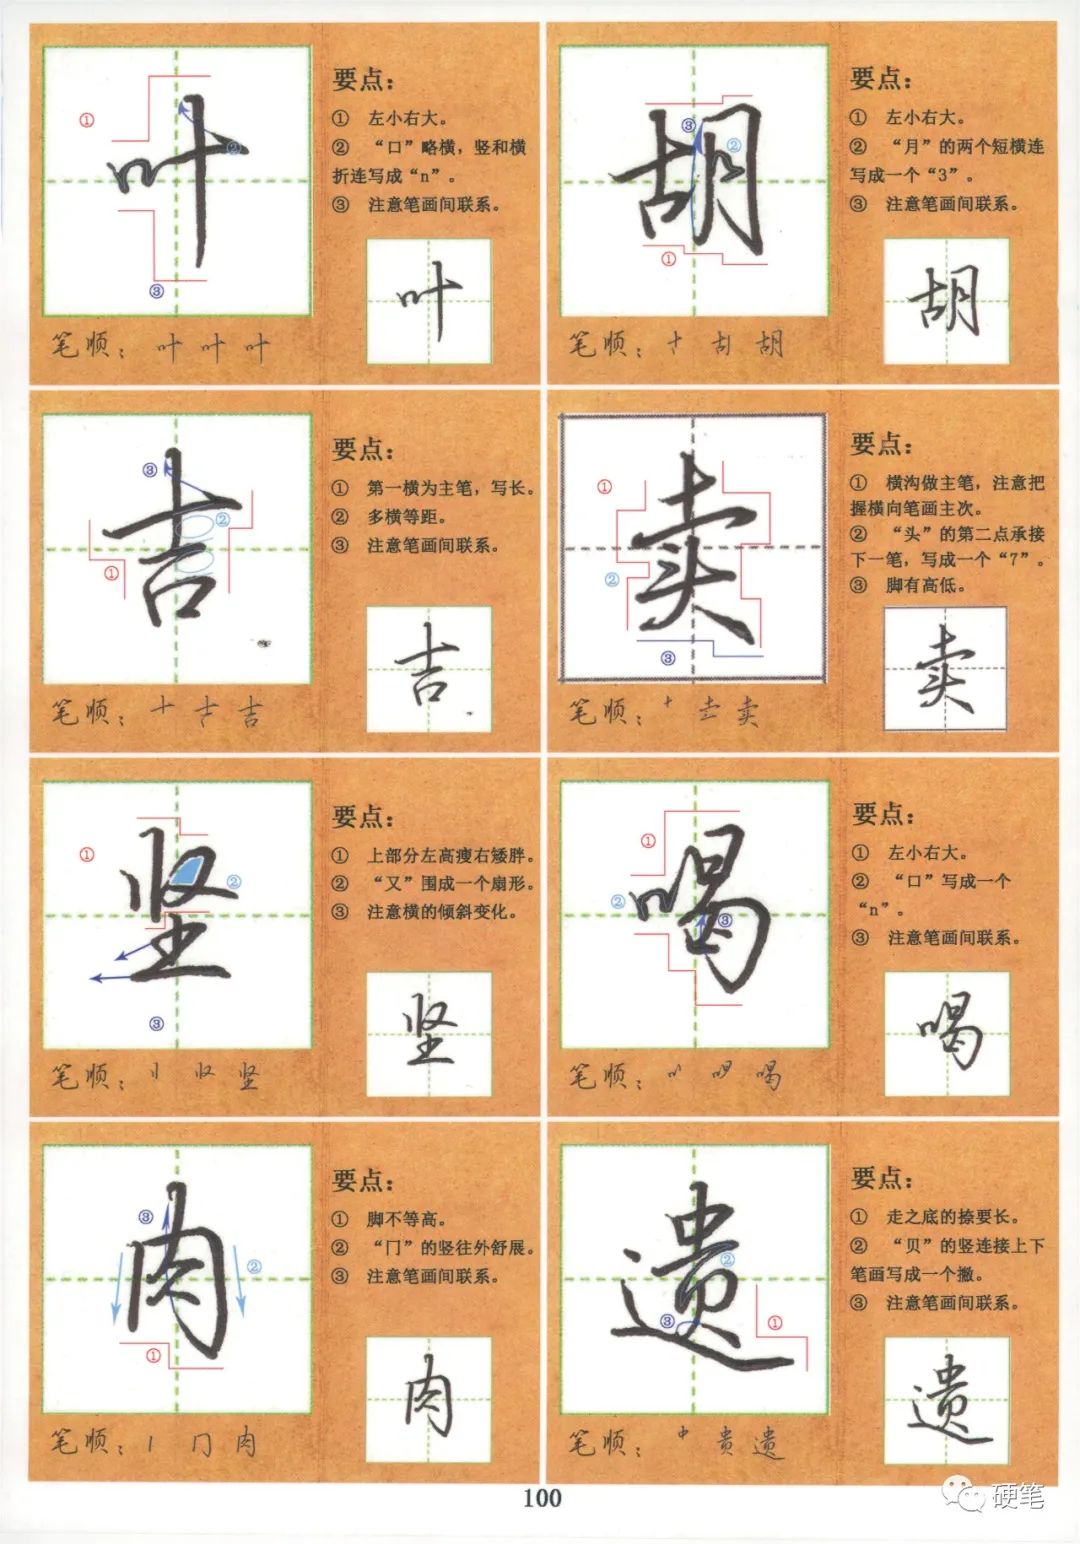 叶
①
②
③
要点：
① 左小右大。
② “口”略横，竖和横
折连写成“n”。
③ 注意笔画间联系。
叶
笔顺：叶 叶 叶
胡
③
②
①
要点：
① 左小右大。
② “月”的两个短横连
写成一个“3”。
③ 注意笔画间联系。
胡
笔顺：十 古 胡
吉
③
②
①
要点：
① 第一横为主笔，写长。
② 多横等距。
③ 注意笔画间联系。
吉
笔顺：十 士 吉
卖
①
②
③
要点：
① 横沟做主笔，注意把
握横向笔画主次。
② “头”的第二点承接
下一笔，写成一个“7”。
③ 脚有高低。
卖
笔顺：十 卖
竖
①
②
③
要点：
① 上部分左高瘦右矮胖。
② “又”围成一个扇形。
③ 注意横的倾斜变化。
竖
笔顺：竖
喝
①
②
③
要点：
① 左小右大。
② “口”写成一个
“n”。
③ 注意笔画间联系。
喝
笔顺：喝
肉
③
②
①
要点：
① 脚不等高。
② “冂”的竖往外舒展。
③ 注意笔画间联系。
肉
笔顺：丨 冂 肉
遗
②
③
①
要点：
① 走之底的捺要长。
② “贝”的竖连接上下
笔画写成一个撇。
③ 注意笔画间联系。
遗
笔顺：中 贵 遗
100
硬笔